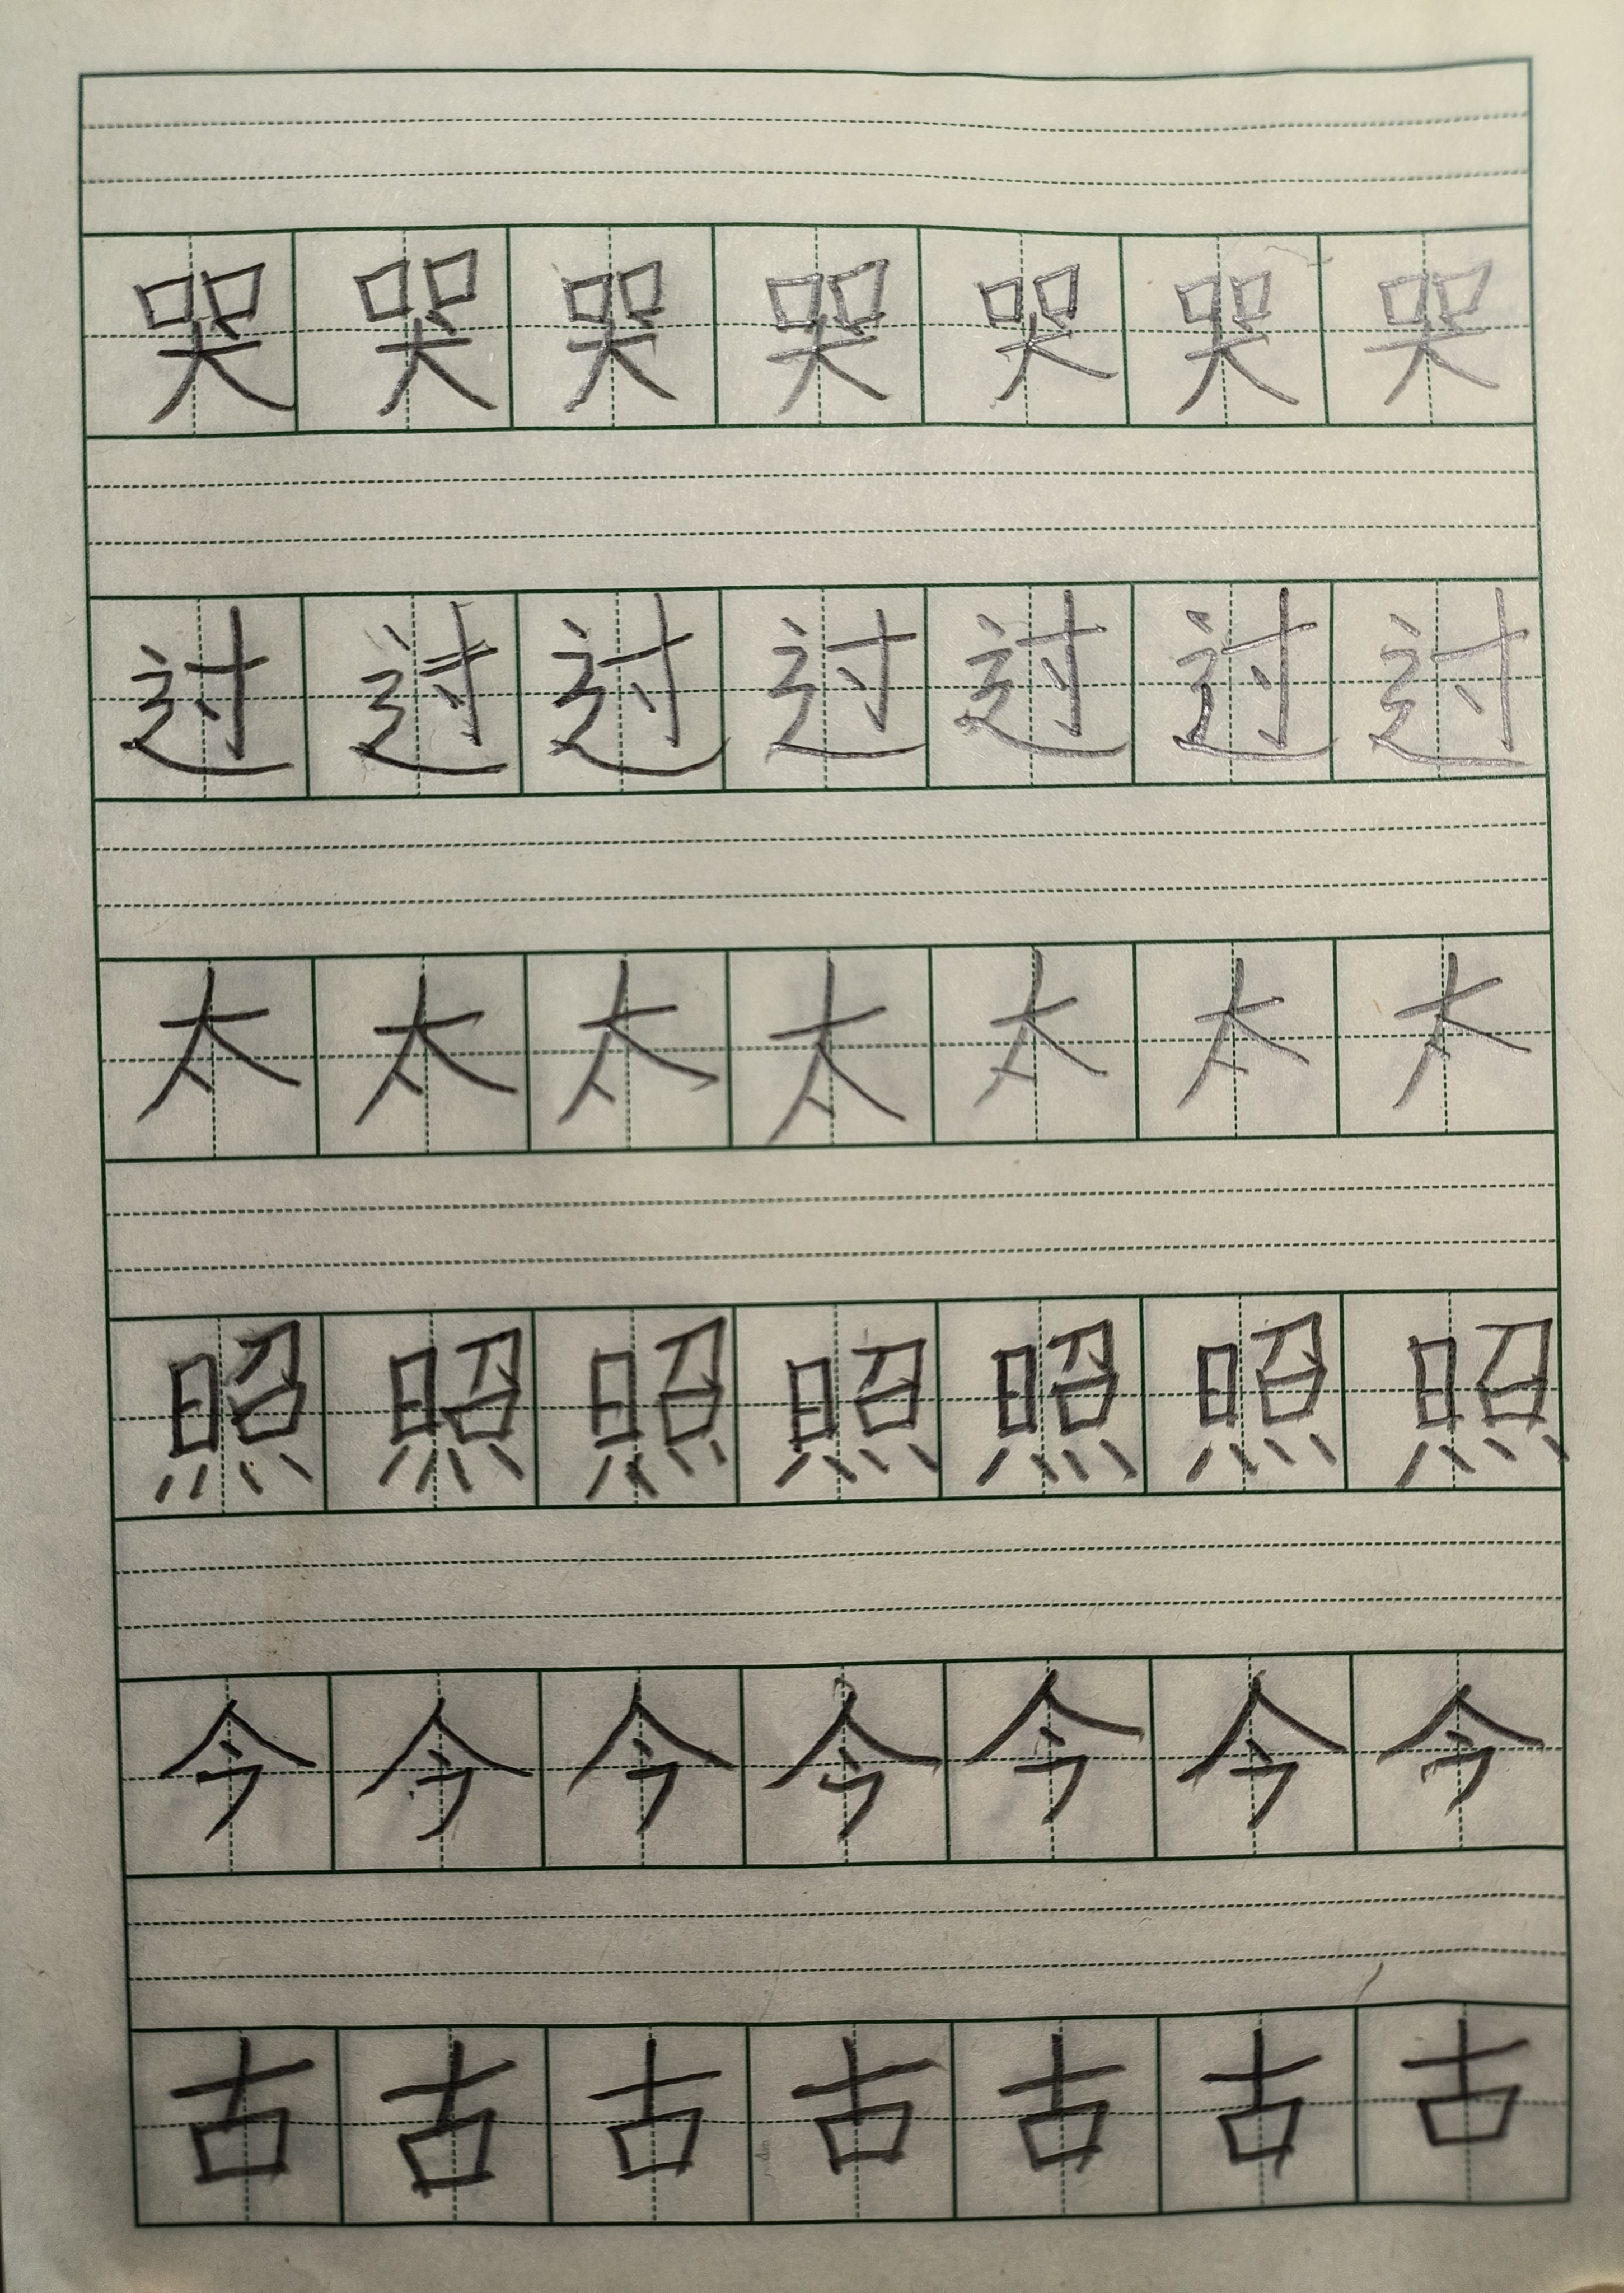 哭哭哭哭哭哭哭
过过过过过过过
太太太太太太太
照照照照照照照
今今今今今今今
古古古古古古古